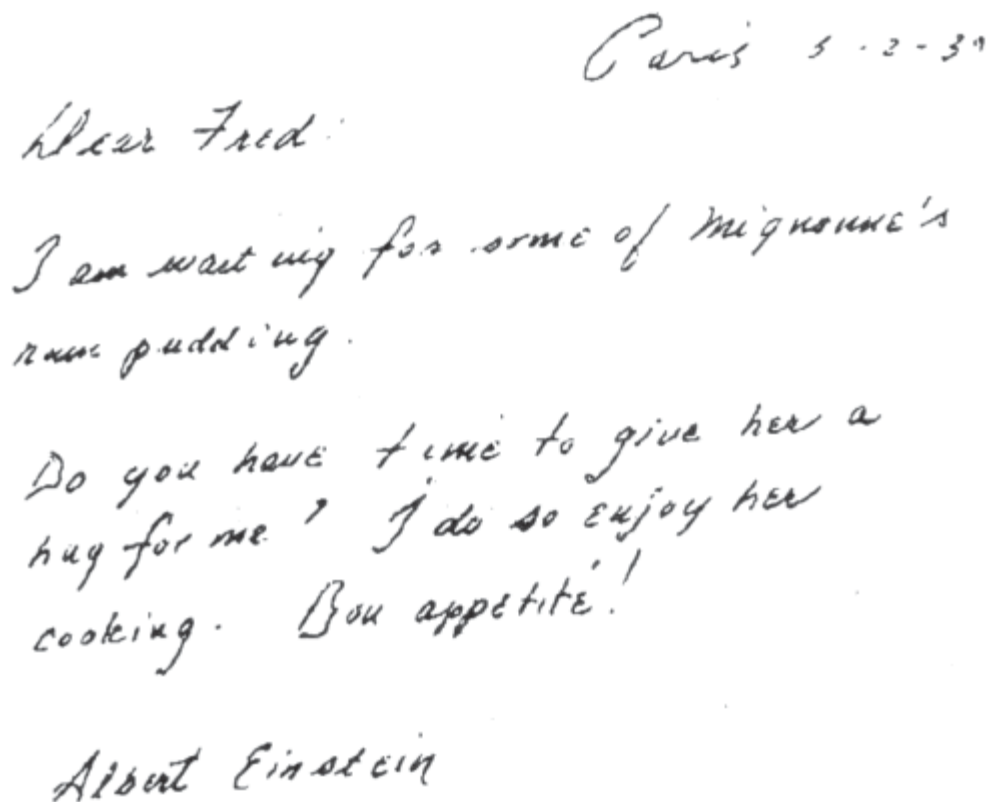 Paris 5-2-30
Dear Fred:
I am waiting for some of Mignonne's
rum pudding.
Do you have time to give her a
hug for me? I do so enjoy her
cooking. Bon appetité!
Albert Einstein